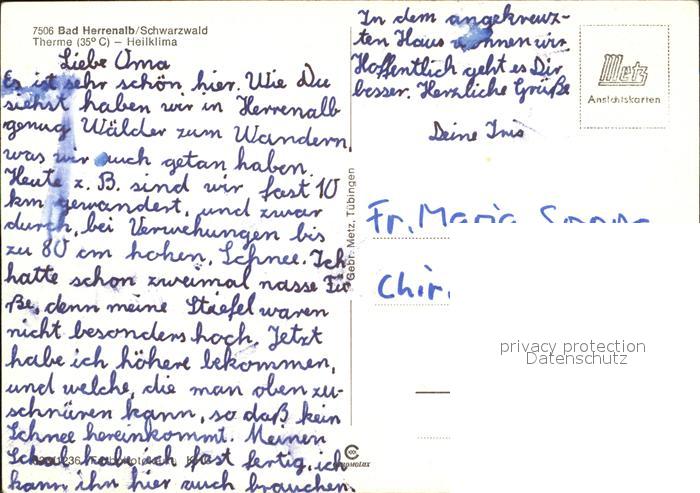 7506 Bad Herrenalb/Schwarzwald
Therme (35° C) – Heilklima
Liebe Oma
Es ist sehr schön hier. Wie Du
siehst haben wir in Herrenalb
genug Wälder zum Wandern,
was wir auch getan haben.
Heute z. B. sind wir fast 10
km gewandert, und zwar
durch, bei Verwehungen bis
zu 80 cm hohen, Schnee. Ich
hatte schon zweimal nasse Fü-
ße, denn meine Stiefel waren
nicht besonders hoch. Jetzt
habe ich höhere bekommen,
und welche, die man oben zu-
schnüren kann, so daß kein
Schnee hereinkommt. Meinen
Schal hab ich fast fertig, ich
kann ihn hier auch brauchen.
In dem angekreuz-
ten Haus wohnen wir
Hoffentlich geht es Dir
besser. Herzliche Grüße
Deine Iris
Metz
Ansichtskarten
Gebr. Metz, Tübingen
Fr. Maria
Chir.
privacy protection
Datenschutz